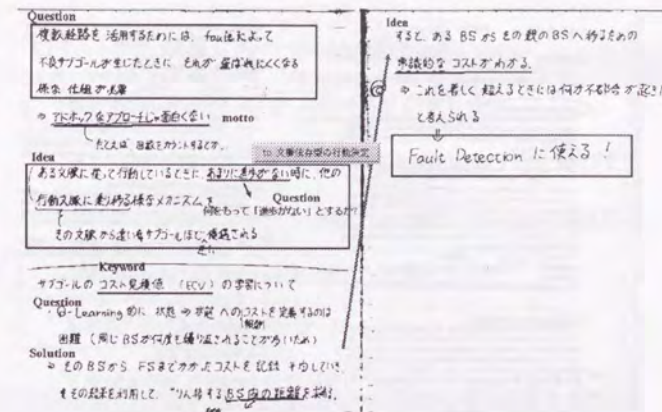 Question
複数経路を活用するためには、faultによって
不良サブゴールが生じたときに、それが選ばれにくくなる
様な仕組が必要
⇒ アドホックなアプローチじゃ面白くない motto
たとえば 回数をカウントするとか。
to 文脈依存型の行動決定
Idea
ある文脈に従って行動しているときに、あまりに進歩がない時に、他の
行動文脈に乗り移る様なメカニズム
Question
何をもって「進歩がない」とするか?
その文脈から遠いサブゴールほど 優遇される
Keyword
サブゴールの コスト見積値 (ECV) の学習について
Question
Q-Learning 的に 状態 ⇒ 状態 へのコストを定義するのは
困難 (同じBSが何度も繰り返されることが多いため)
Solution
⇒ そのBSから FSまでかかったコストを記録
その結果を利用して、 BS内の距離を求める。
Idea
すると、ある BS からその親の BS へ移るための
常識的な コストがわかる。
⇒ これを著しく超えるときには何か不都合が起き
と考えられる
Fault Detection に使える!